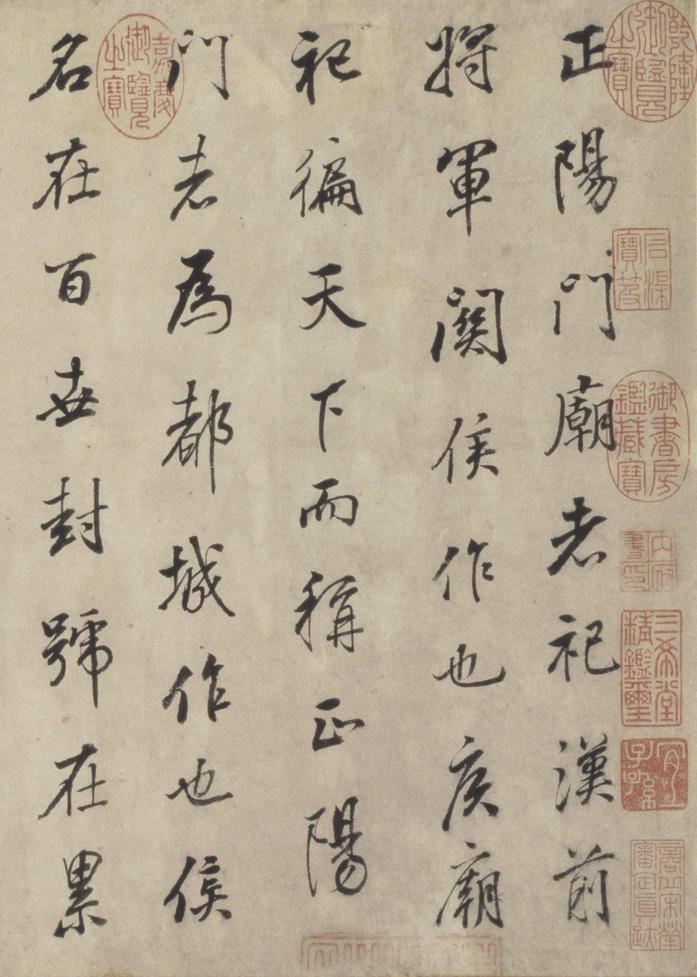 乾隆御覽之寶
石渠寶笈
御書房鑑藏寶
三希堂精鑑璽
宜子孫
正陽門廟者祀漢前
將軍關侯作也侯廟
祀徧天下而稱正陽
門者為都城作也侯
嘉慶御覽之寶
名在百世封號在累